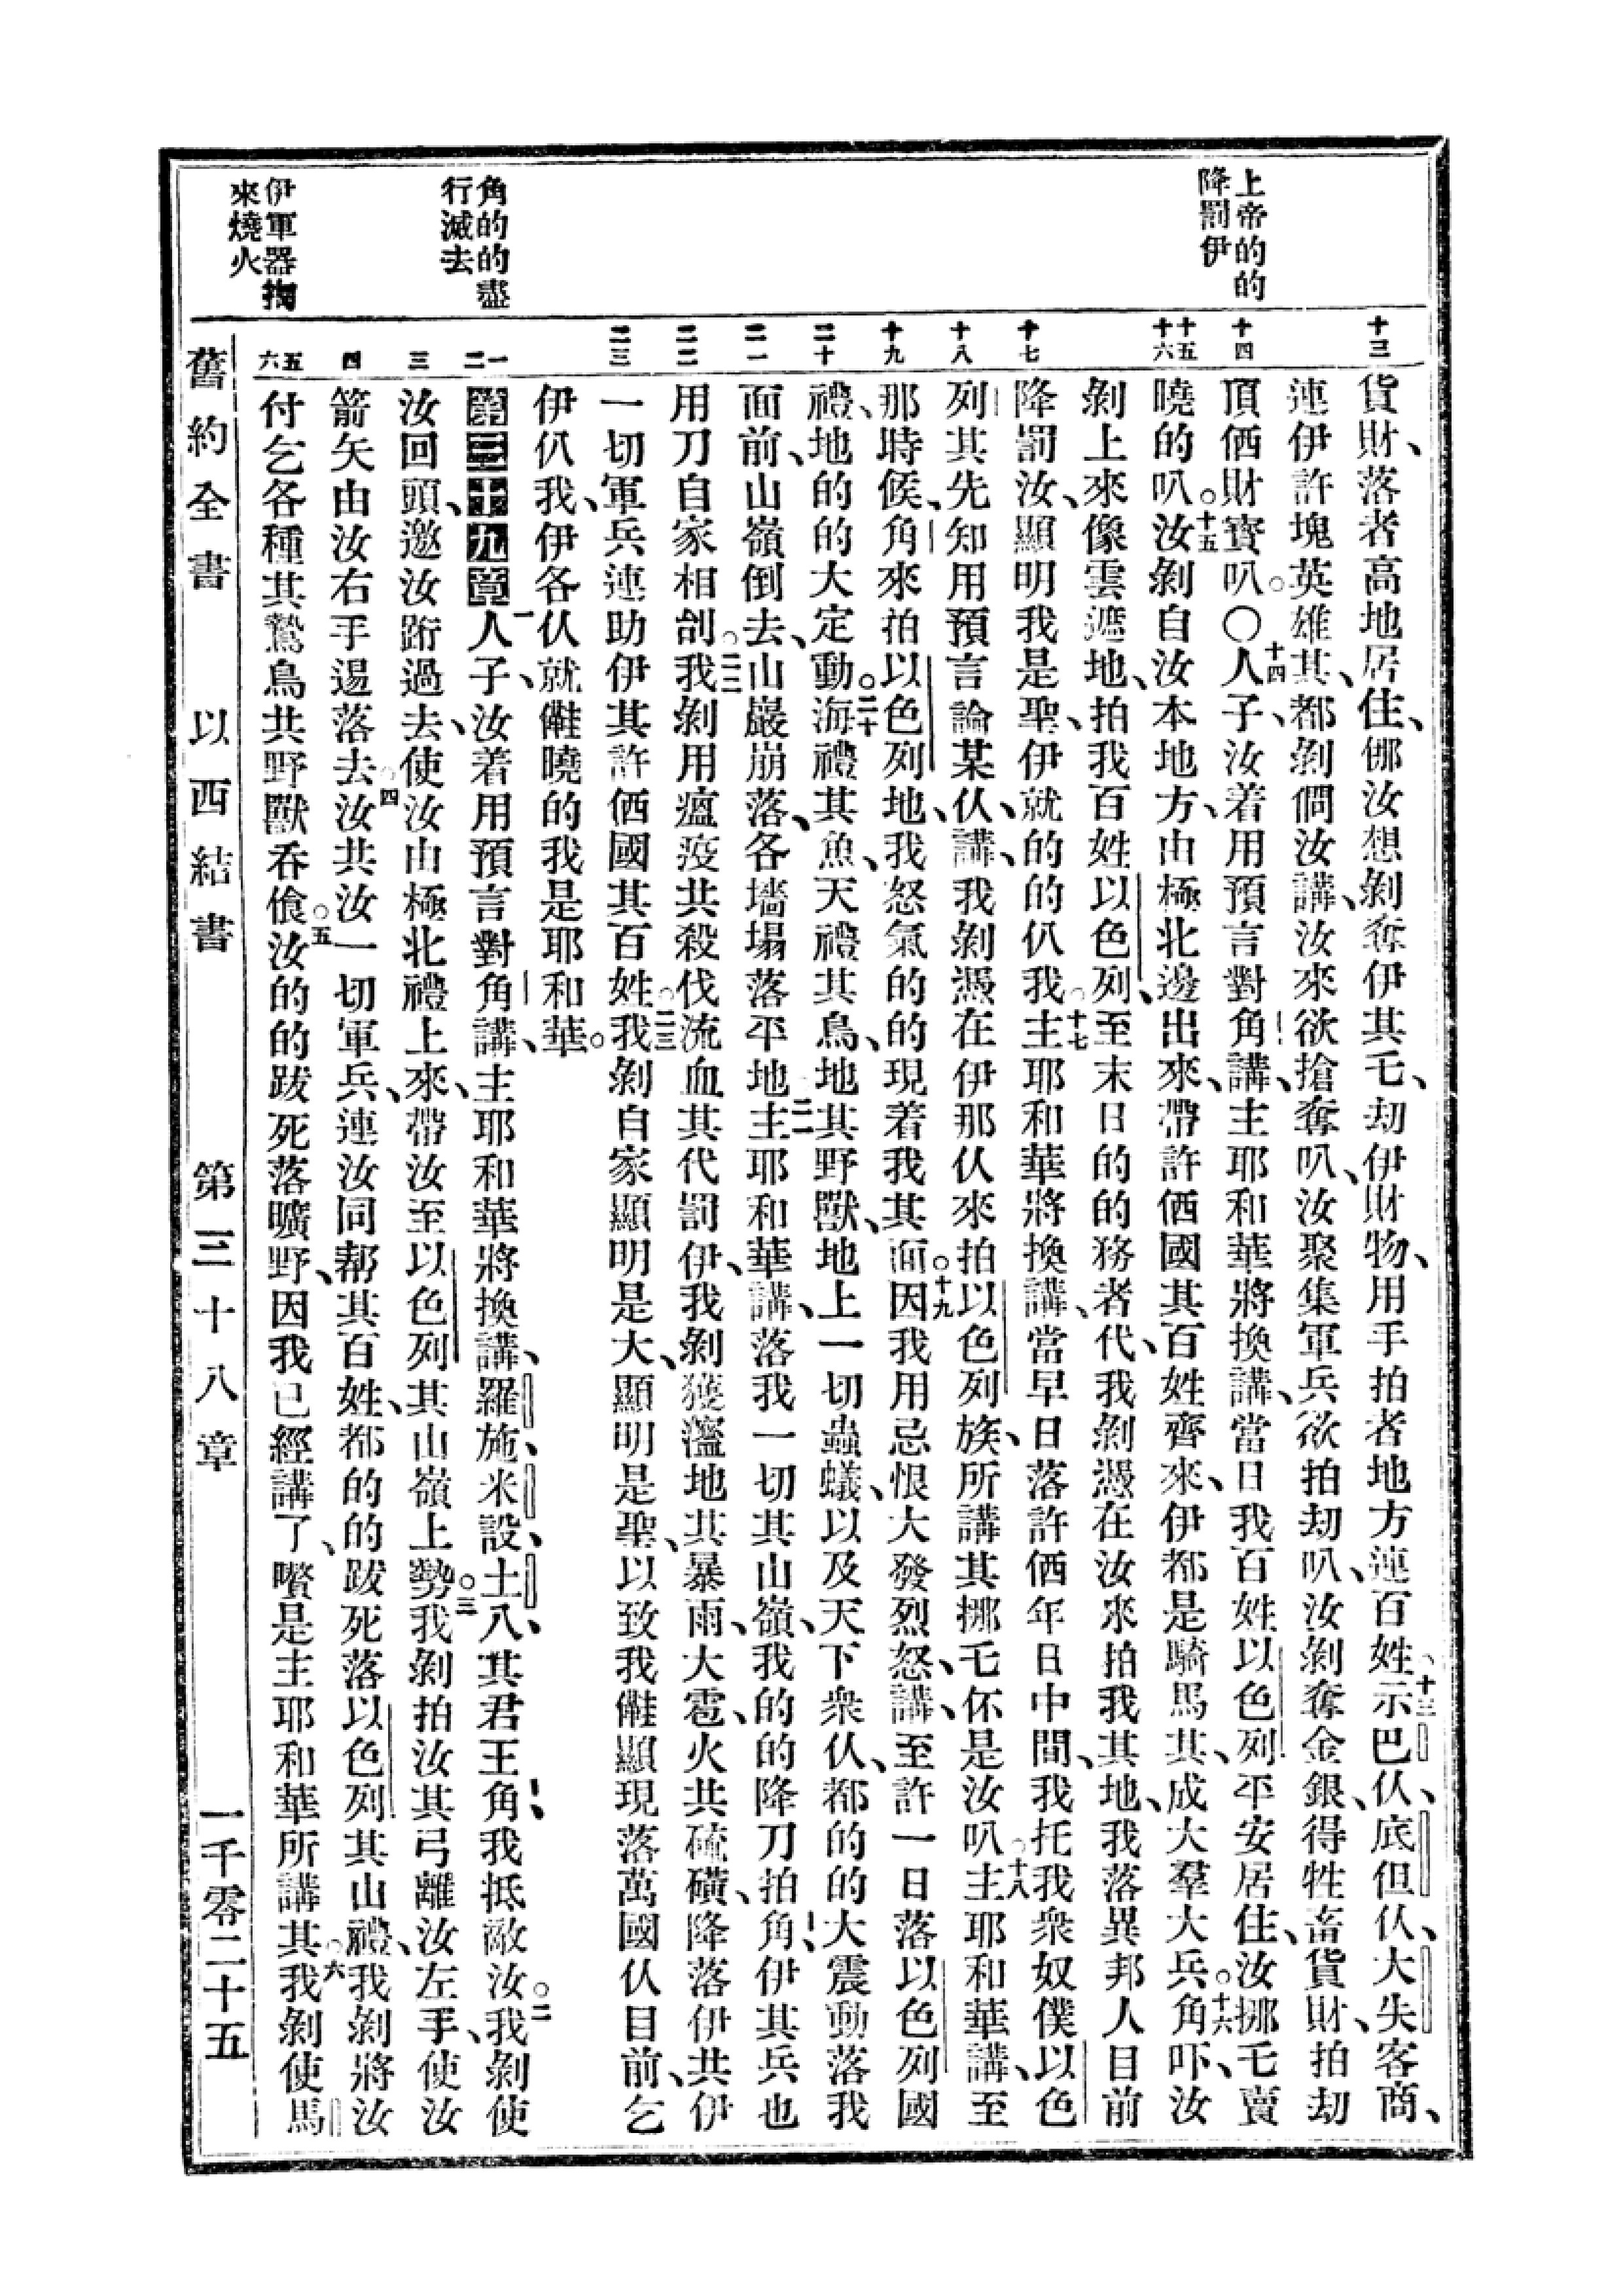 上帝的的
降罰伊
角的的盡
行滅去
伊軍器掏
來燒火
十三
十四
十五
十六
十七
十八
十九
二十
二一
二二
二三
一
二
三
四
五
六
貨財、落者高地居住、㑚汝想剝奪伊其乇、刼伊財物、用手拍者地方連百姓。十三示巴仈、底但仈、大失客商、
連伊許塊英雄其、都剝僩汝講、汝來欲搶奪叭、汝聚集軍兵欲拍刼叭、汝剝奪金銀、得牲畜貨財、拍刼
頂価財寳叭。〇十四人子、汝着用預言對角講、主耶和華將換講、當日我百姓以色列平安居住、汝挪乇賣
曉的叭。十五汝剝自汝本地方、由極北邊出來、帶許価國其百姓齊來、伊都是騎馬其、成大羣大兵。十六角吓、汝
剝上來像雲遮地、拍我百姓以色列、至末日的的務者代、我剝憑在汝來拍我其地、我落異邦人目前
降罰汝、顯明我是聖、伊就的的仈我。十七主耶和華將換講、當早日落許価年日中間、我托我衆奴僕以色
列其先知用預言論某仈、講、我剝憑在伊那仈來拍以色列族、所講其挪乇伓是汝叭。十八主耶和華講、至
那時候、角來拍以色列地、我怒氣的的現着我其面。十九因我用忌恨大發烈怒、講、至許一日落以色列國
禮、地的的大定動。二十海禮其魚、天禮其鳥、地其野獸、地上一切蟲蟻、以及天下衆仈、都的的大震動落我
面前、山嶺倒去、山巖崩落、各墻塌落平地。二一主耶和華講、落我一切其山嶺、我的的降刀拍角、伊其兵也
用刀自家相刣。二二我剝用瘟疫共殺伐流血其代罰伊、我剝獲灩地其暴雨、大雹、火共硫磺、降落伊共伊
一切軍兵連助伊其許価國其百姓。二三我剝自家顯明是大、顯明是聖、以致我儺顯現落萬國仈目前、乞
伊仈我、伊各仈就儺曉的我是耶和華。
第三十九章一人子、汝着用預言對角講、主耶和華將換講、羅施、米設、土八、其君王角、我抵敵汝。二我剝使
汝回頭、邀汝跲過去、使汝由極北禮上來、帶汝至以色列其山嶺上勢。三我剝拍汝其弓離汝左手、使汝
箭矢由汝右手遢落去。四汝共汝一切軍兵、連汝同帮其百姓、都的的跋死落以色列其山禮、我剝將汝
付乞各種其鷙鳥共野獸吞飡。五汝的的跋死落曠野、因我已經講了、嚽是主耶和華所講其。六我剝使馬
舊約全書　以西結書　第三十八章　一千零二十五